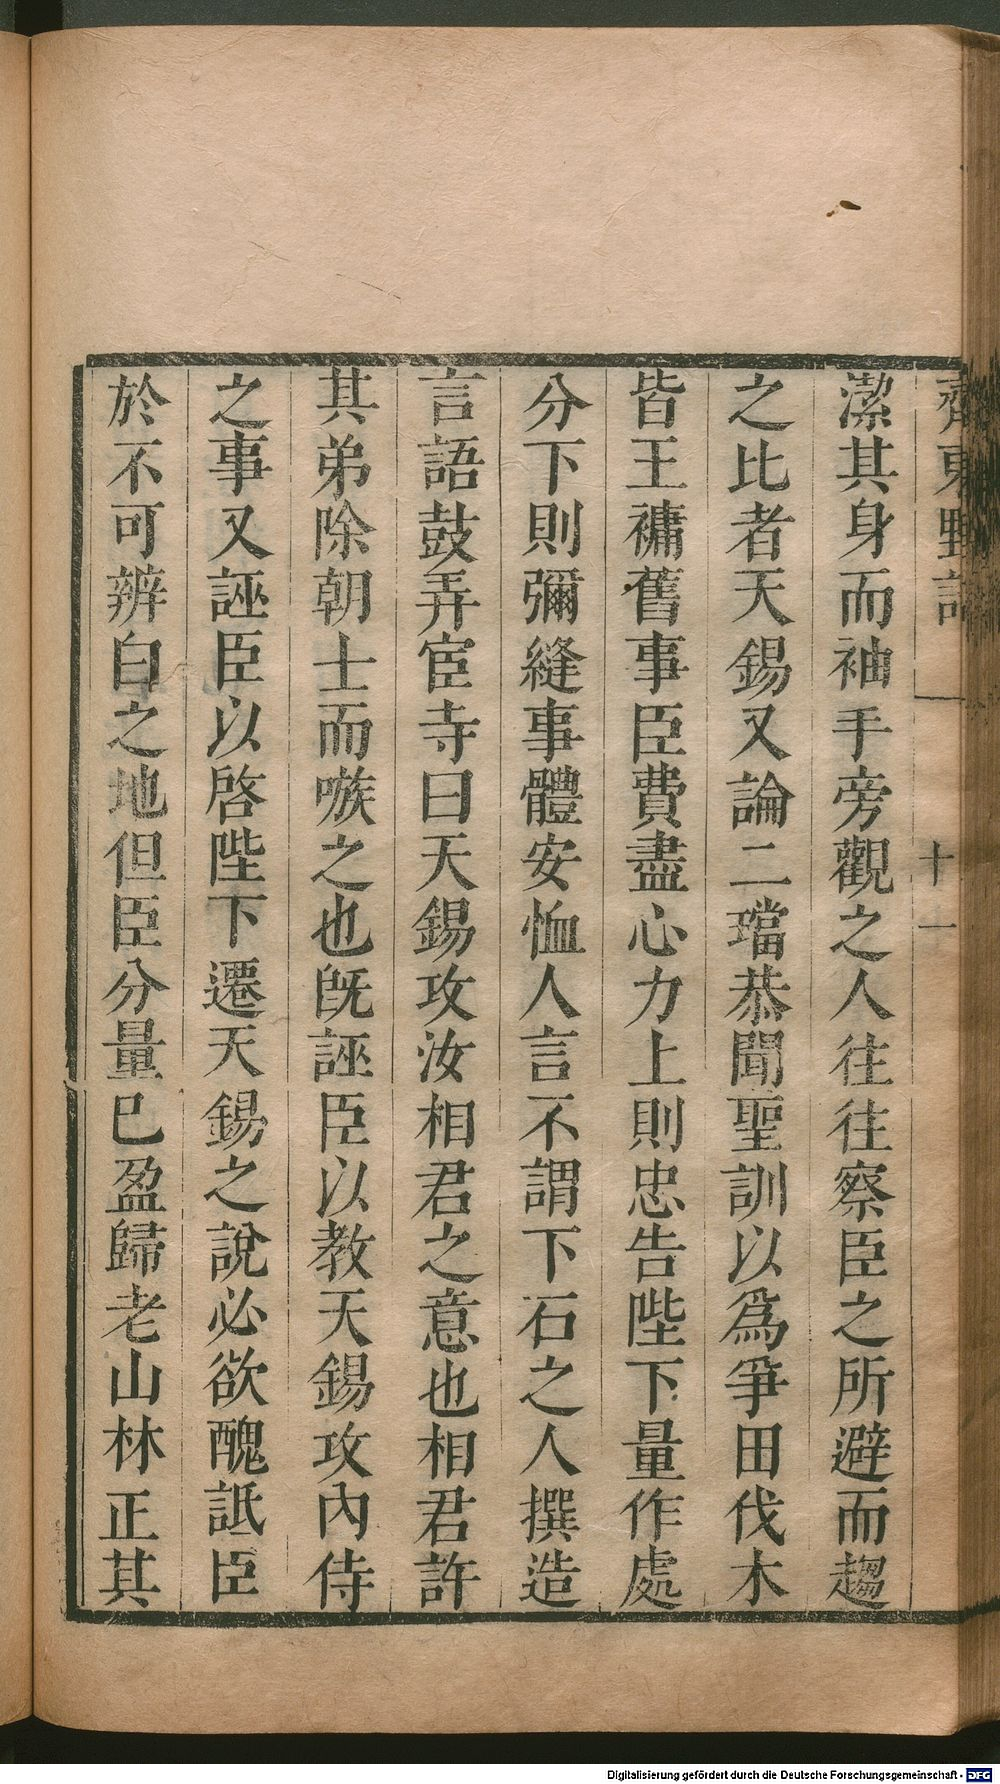 齊東野語
十一
潔其身而袖手旁觀之人往往察臣之所避而趨
之比者天錫又論二璫恭聞聖訓以爲爭田伐木
皆王禙舊事臣費盡心力上則忠告陛下量作處
分下則彌縫事體安恤人言不謂下石之人撰造
言語鼓弄宦寺曰天錫攻汝相君之意也相君許
其弟除朝士而嗾之也旣誣臣以教天錫攻內侍
之事又誣臣以啓陛下遷天錫之說必欲醜詆臣
於不可辨白之地但臣分量已盈歸老山林正其
Digitalisierung gefördert durch die Deutsche Forschungsgemeinschaft - DFG